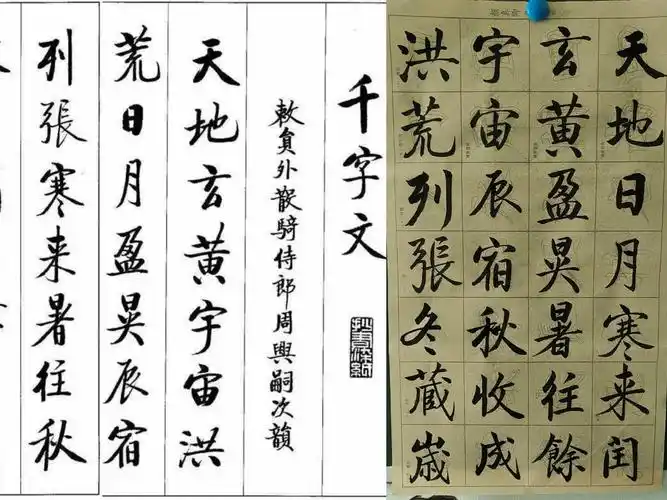 千字文
敕員外散騎侍郎周興嗣次韻
天地玄黄宇宙洪
荒日月盈昃辰宿
列張寒来暑往秋
天地日月寒来閏
玄黄盈昃暑往餘
宇宙辰宿秋收成
洪荒列張冬藏歲